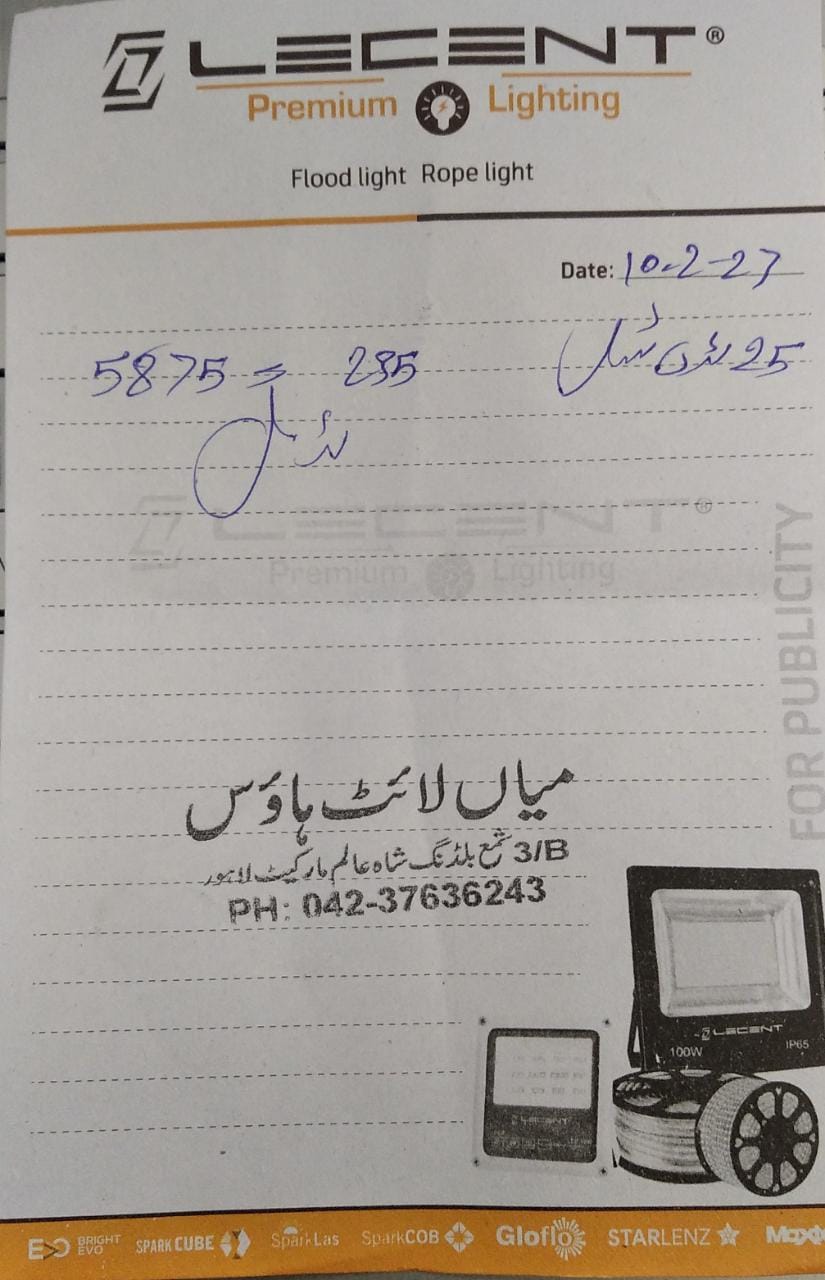 LECENT®
Premium Lighting
Flood light Rope light
Date: 10-2-27
25 235 = 5875
LECENT®
Premium Lighting
FOR PUBLICITY
میاں لائٹ ہاؤس
3/B شمع بلڈنگ شاہ عالم مارکیٹ لاہور
PH: 042-37636243
LECENT
100W IP65
LECENT
BRIGHT EVO SPARK CUBE SparkLas SparkCOB Gloflo STARLENZ